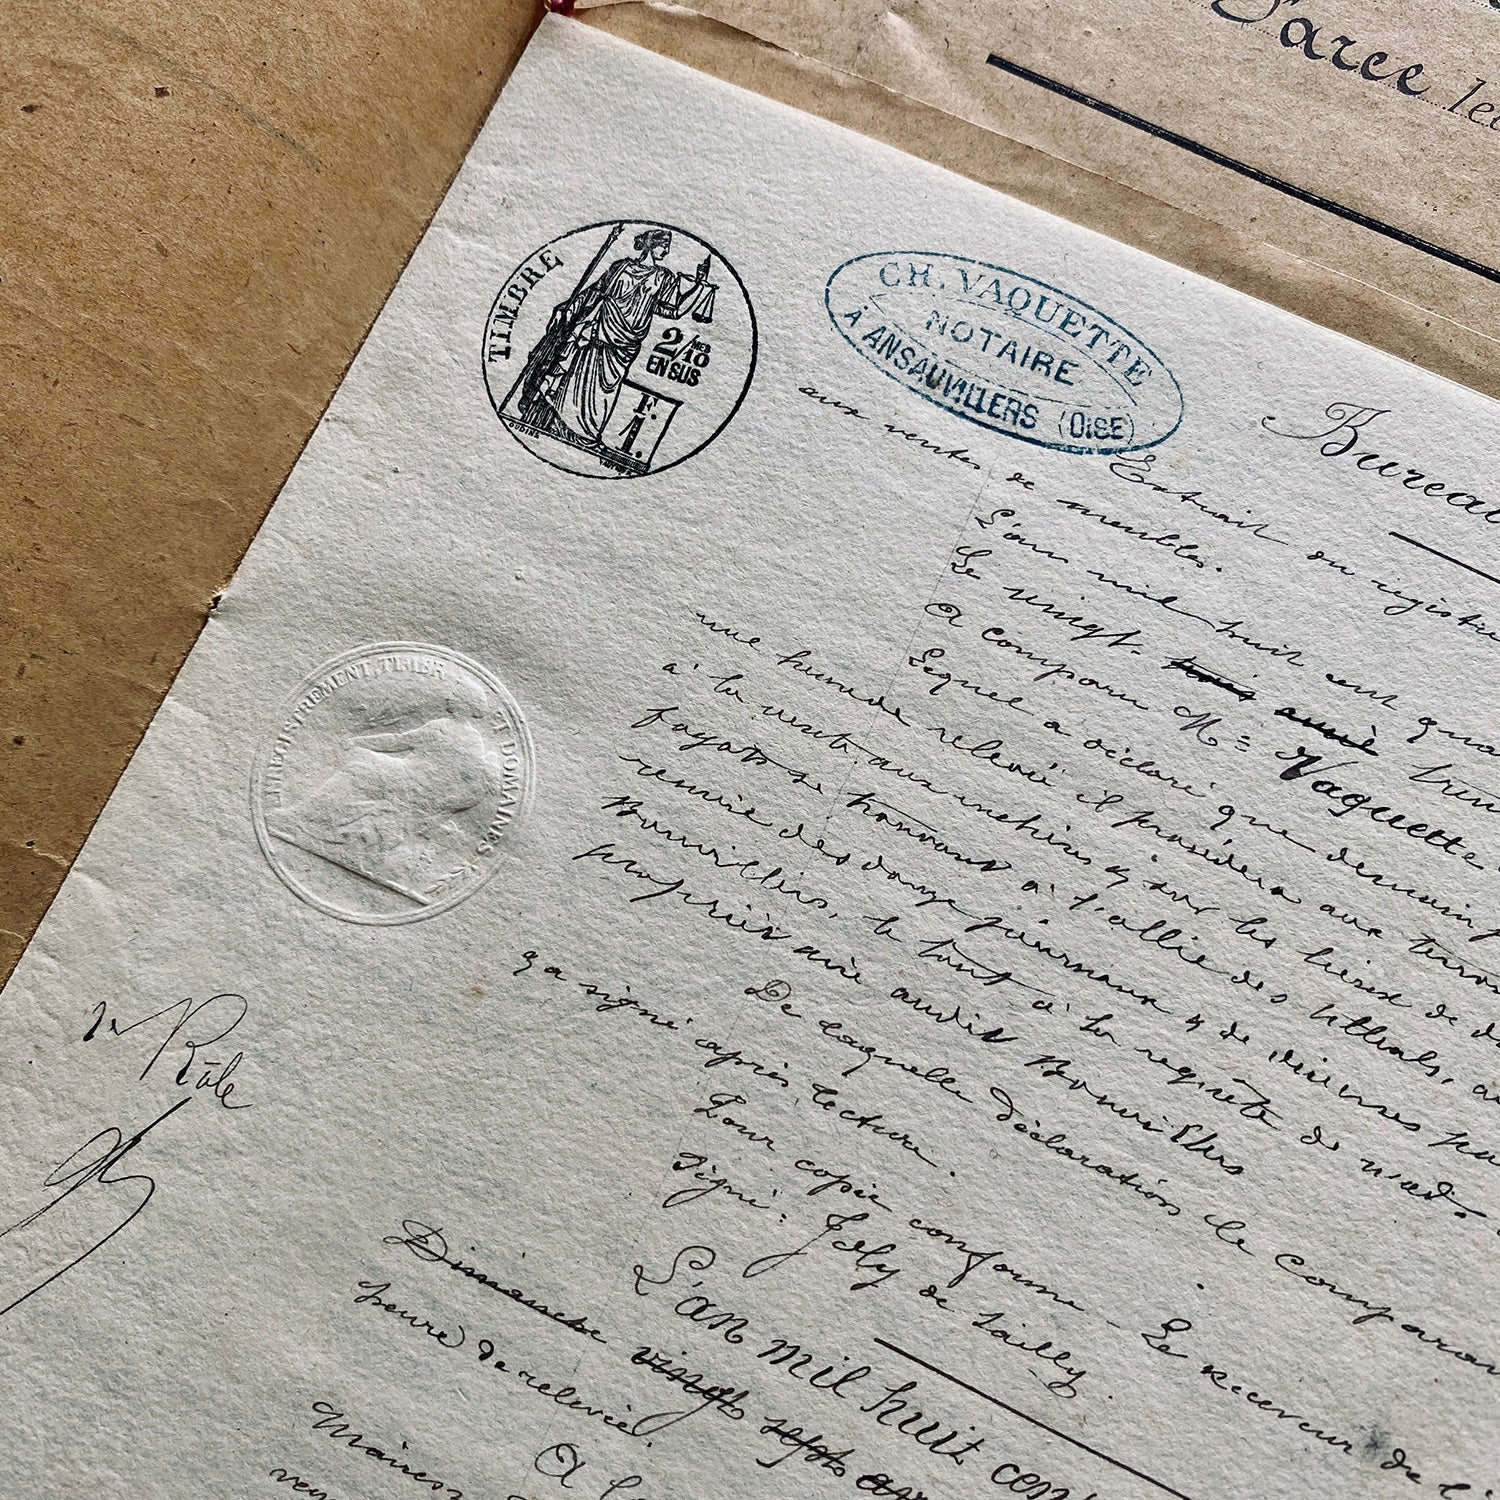 Farce
TIMBRE
2/10 MES
EN SUS
F.
1.
OUDINÉ
CH. VAQUETTE
NOTAIRE
À ANSAUVILLERS (OISE)
ENREGISTREMENT, TIMBRE ET DOMAINES
Bureau
Extrait du registre
aux ventes de meubles.
L'an mil huit cent qua
Le vingt trois
A comparu Me Vaquette
Lequel a déclaré que demain
une heure de relevé il procédera aux
à la vente aux enchères & sur les lieux de
fagots se trouvant à l'allée des Tilleuls,
remise des douze journaux & de diverses
Bonvillers, le tout à la requête de mad.
propriétaire audit Bonvillers
De laquelle déclaration le comparant
a signé après lecture.
Pour copie conforme. Le receveur de l'
Signé: Joly de
1er Rôle
L'an mil huit cent
Dimanche vingt sept
heure de relevée.
A la
Maires